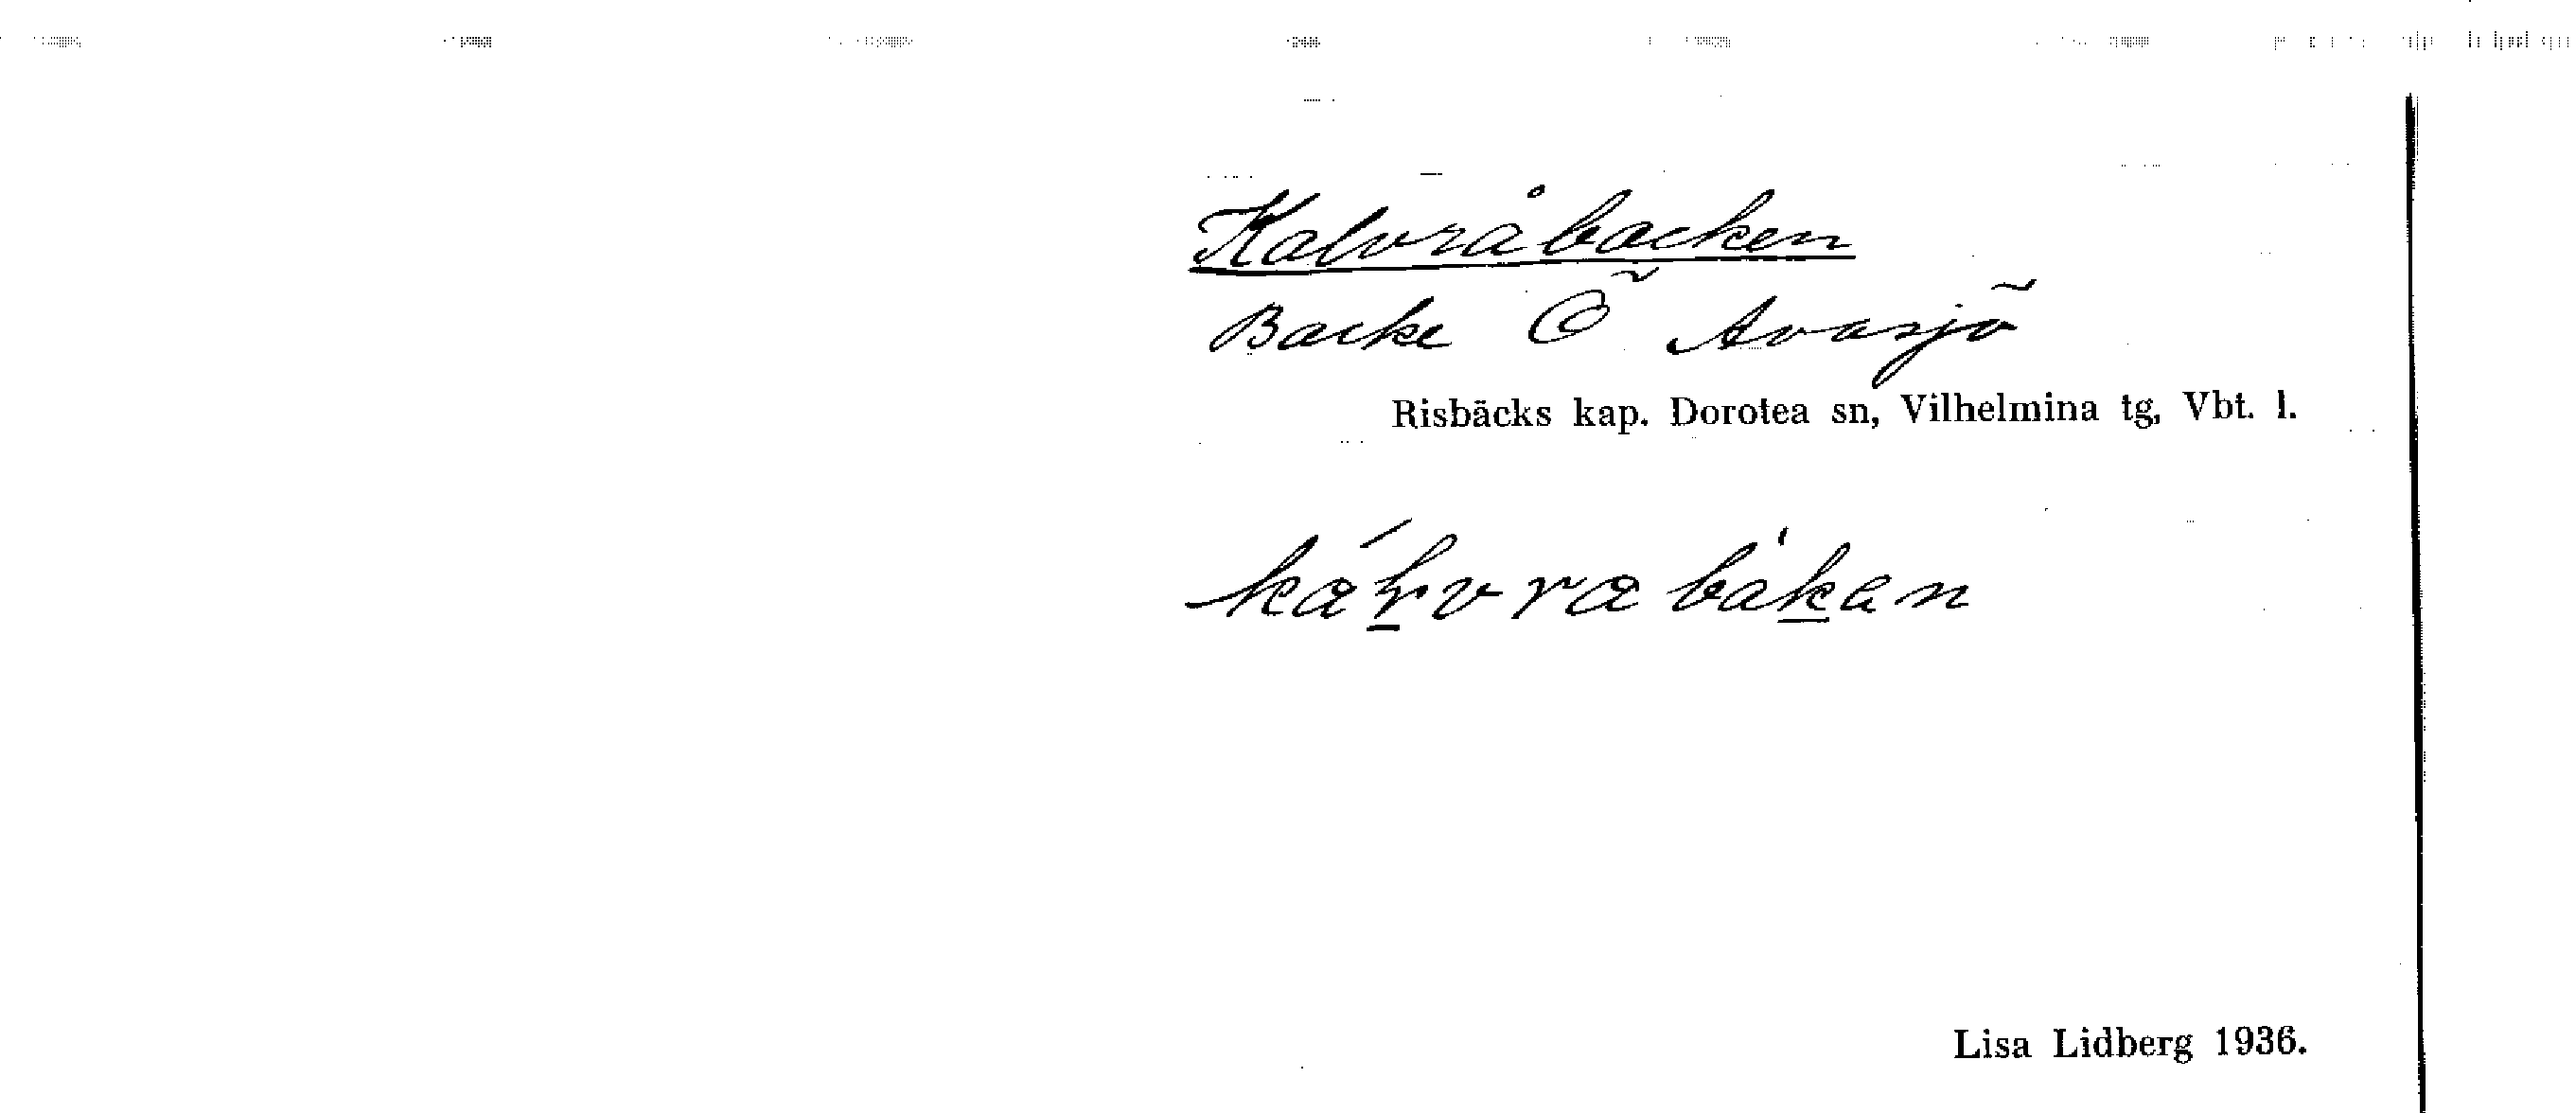 Kalvråbacken
Backe Ö Avasjö
Risbäcks kap. Dorotea sn, Vilhelmina tg, Vbt. l.
Lisa Lidberg 1936.